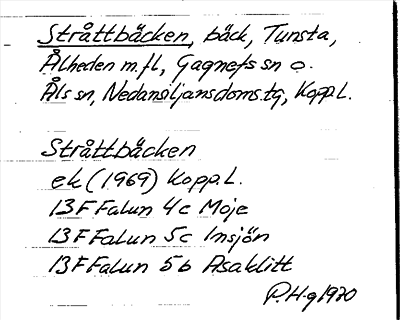 Stråttbäcken, bäck, Tunsta,
Ålheden m.fl, Gagnefs sn o.
Åls sn, Nedansiljansdoms.tg, Kopp.L.
Stråttbäcken
ek (1969) Kopp.L.
13F Falun 4c Moje
13F Falun 5c Insjön
13F Falun 5b Asaklitt
P.H-g 1970